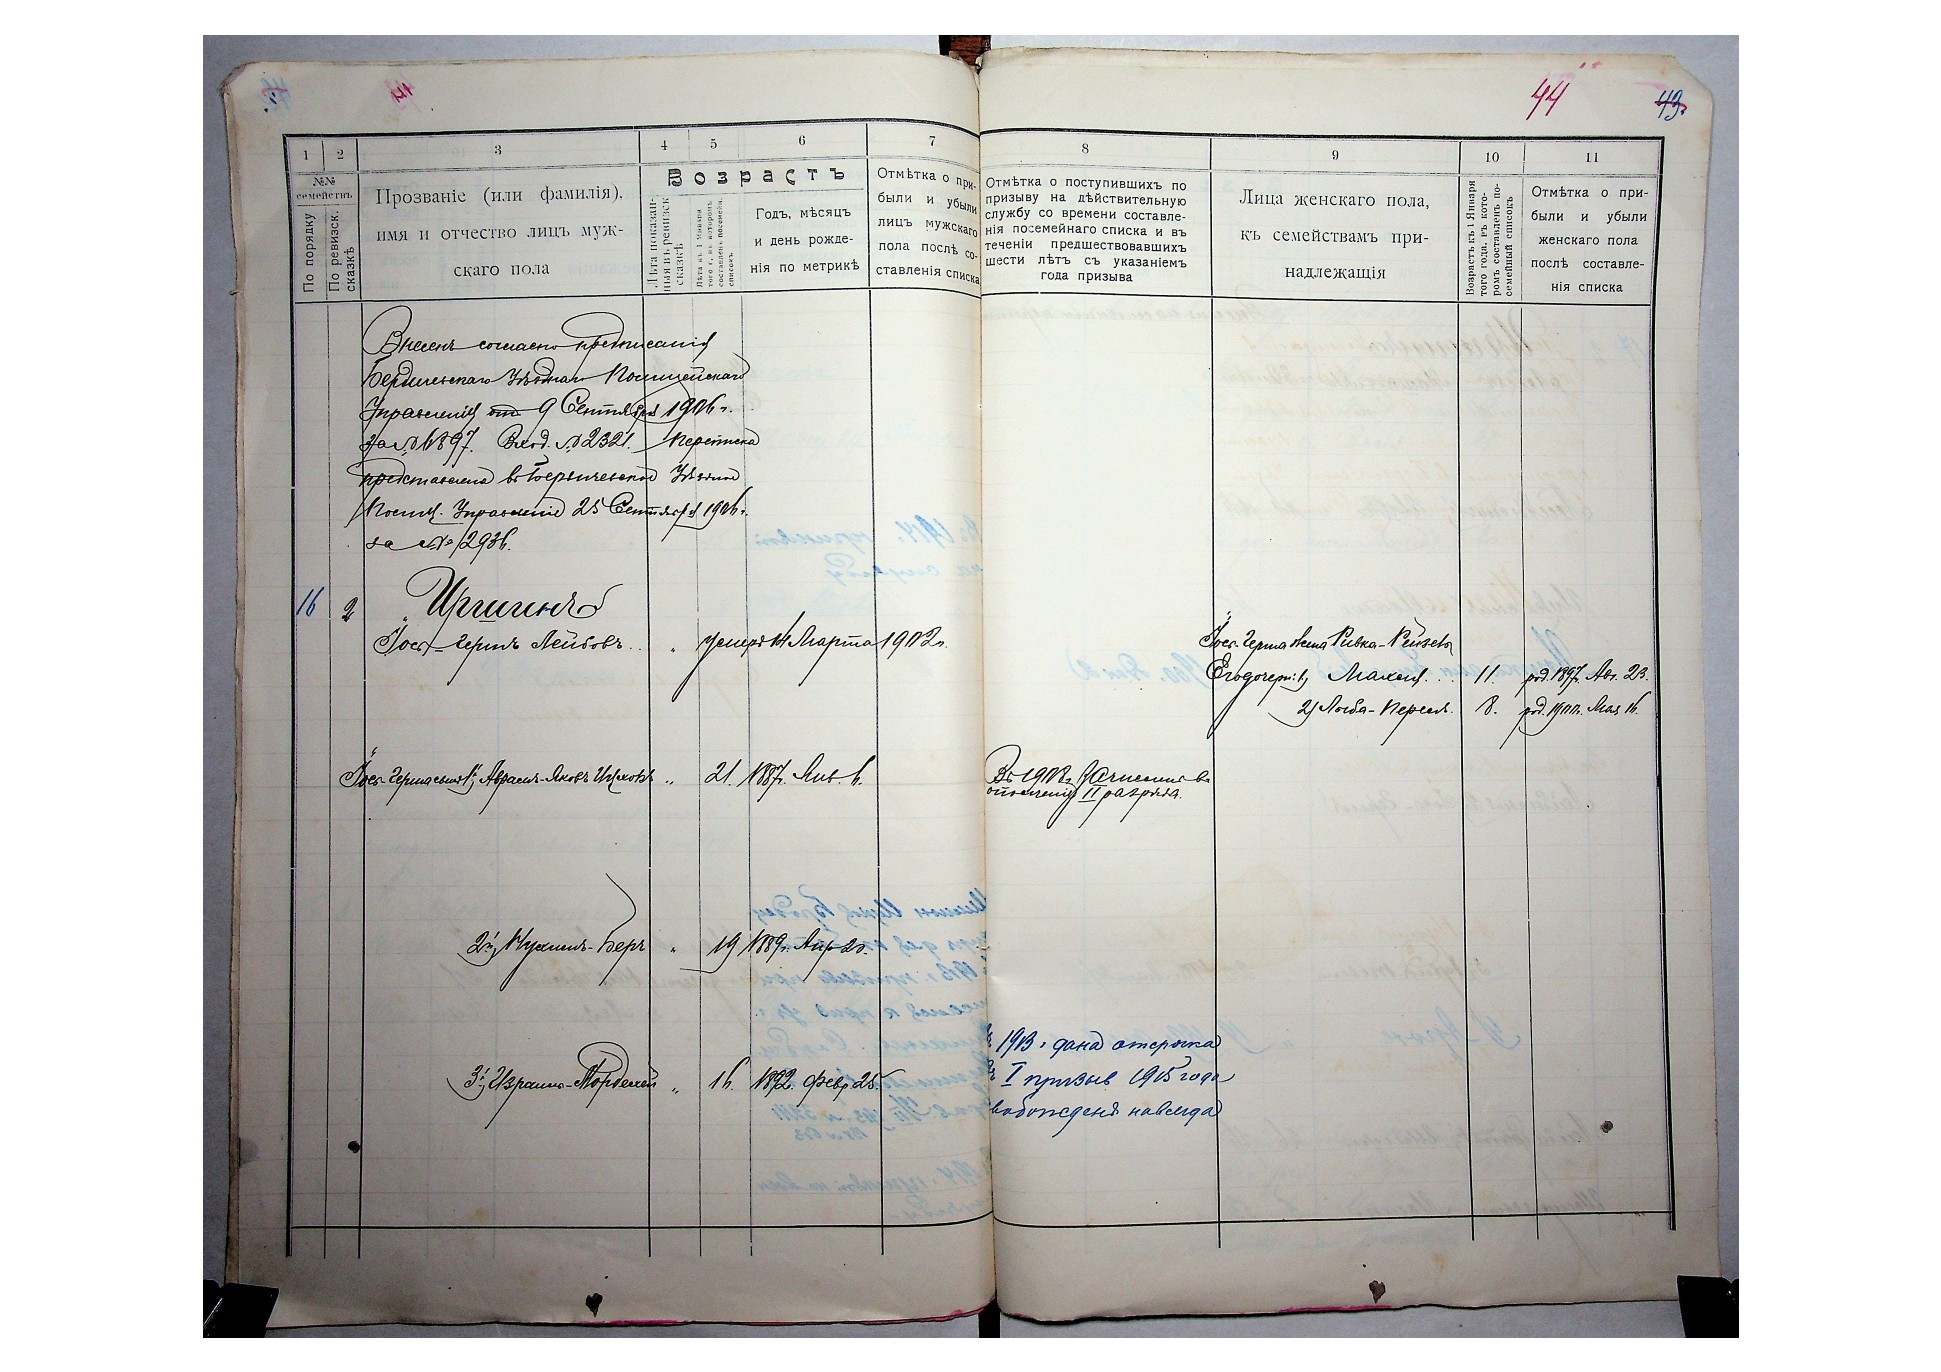 44
43.
1
2
3
4
5
6
7
8
9
10
11
№№ семействъ
По порядку
По ревизск. сказкѣ
Прозваніе (или фамилія),
имя и отчество лицъ муж-
скаго пола
Возрастъ
Лѣта показан-
ныя въ ревизск
сказкѣ
Лѣта къ 1 Января
того г., въ которомъ
составленъ посемейн.
списокъ
Годъ, мѣсяцъ
и день рожде-
нія по метрикѣ
Отмѣтка о при-
были и убыли
лицъ мужскаго
пола послѣ со-
ставленія списка
Отмѣтка о поступившихъ по
призыву на дѣйствительную
службу со времени составле-
нія посемейнаго списка и въ
теченіи предшествовавшихъ
шести лѣтъ съ указаніемъ
года призыва
Лица женскаго пола,
къ семействамъ при-
надлежащія
Возрастъ къ 1 Января
того года, въ кото-
ромъ составленъ по-
семейный списокъ
Отмѣтка о при-
были и убыли
женскаго пола
послѣ составле-
нія списка
Внесенъ согласно предписанія
Бердичевскаго Уѣзднаго Полицейскаго
Управленія отъ 9 Сентября 1906 г.
за № 1897. Вход. № 2321. Переписка
представлена въ Бердичевское Уѣздное
Полиц. Управленіе 25 Сентября 1906 г.
за № 2936.
16 2
Иос.-Гершъ Лейбовъ . . „ умеръ 14 Марта 1902 г.
Иос.-Герша жена Ривка-Рейзя
Его дочери: 1) Махля . . 11. род. 1897 г. Авг. 23.
2) Люба-Переля. 8. род. 1900 г. Мая 16.
Иос.-Герша сынъ 1й, Авраам-Яковъ „ 21. 1887 г. Янв. 6. Въ 1908 г. зачисленъ въ
ополченіе II разряда.
2й, Нухим-Беръ „ 19 1889 г. Апр 20.
3й, Израиль-Мордехай „ 16. 1892. Февр 25
1913 г дана отсрочка
I призыв 1915 года
навсегда